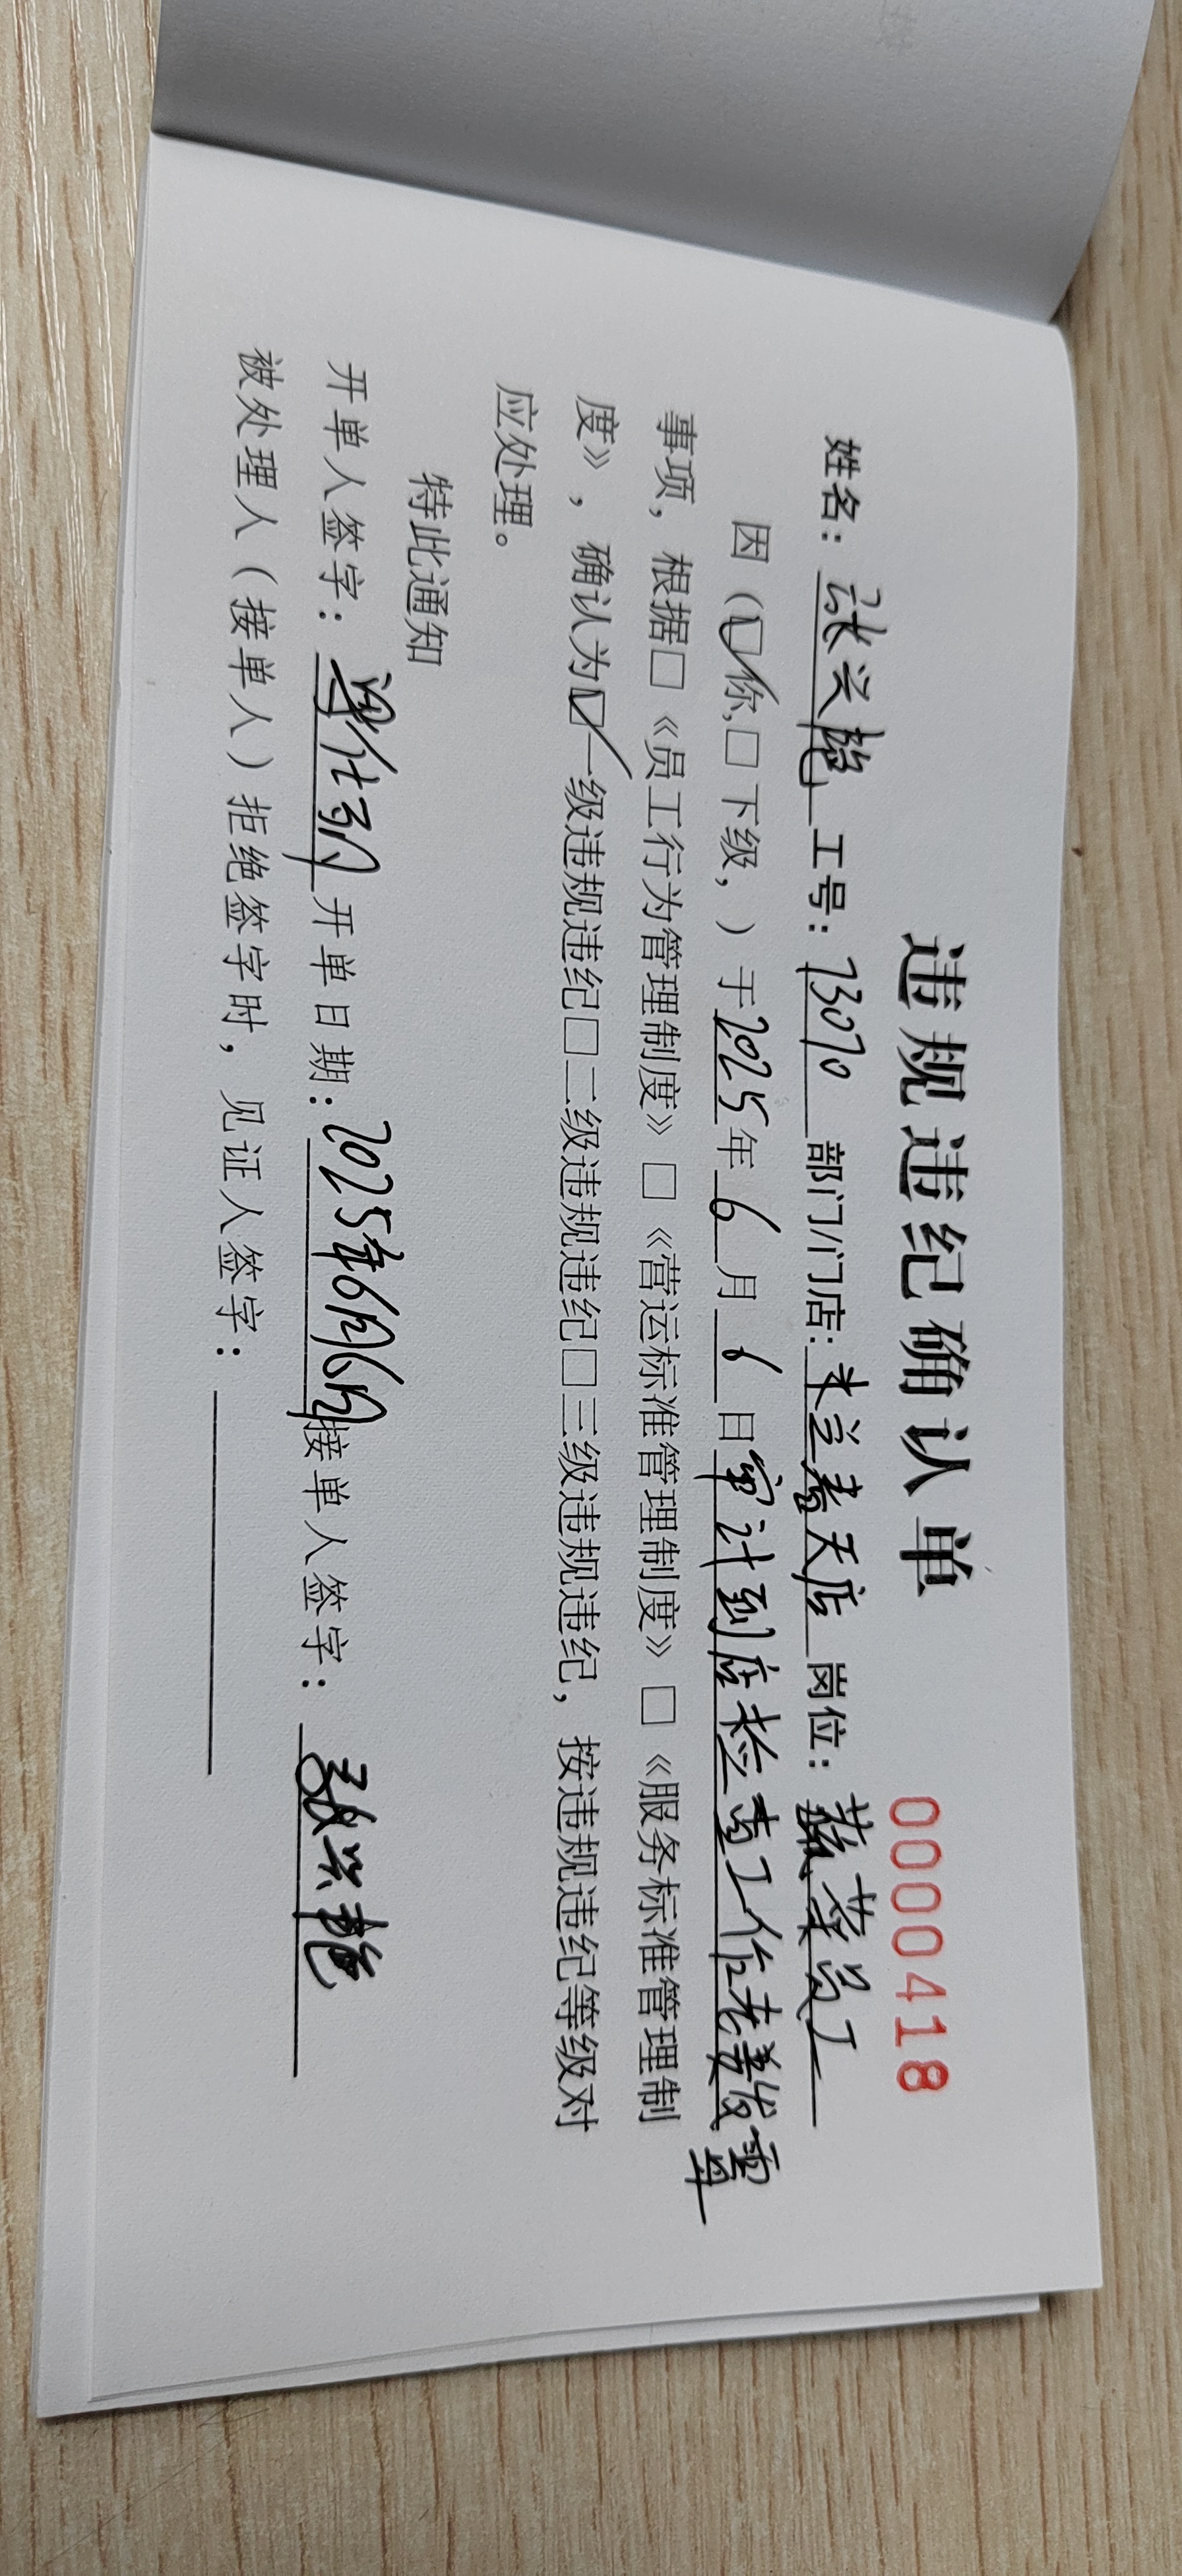 违规违纪确认单
0000418
姓名：张兴艳 工号：73070 部门/门店：米兰春天店 岗位：蔬菜员工
因（☑你，□下级，）于2025年6月6日审计到店检查工作老姜发霉
事项，根据□《员工行为管理制度》□《营运标准管理制度》□《服务标准管理制
度》，确认为☑一级违规违纪□二级违规违纪□三级违规违纪，按违规违纪等级对
应处理。
特此通知
开单人签字： 开单日期：2025年6月6日 接单人签字：张兴艳
被处理人（接单人）拒绝签字时，见证人签字：